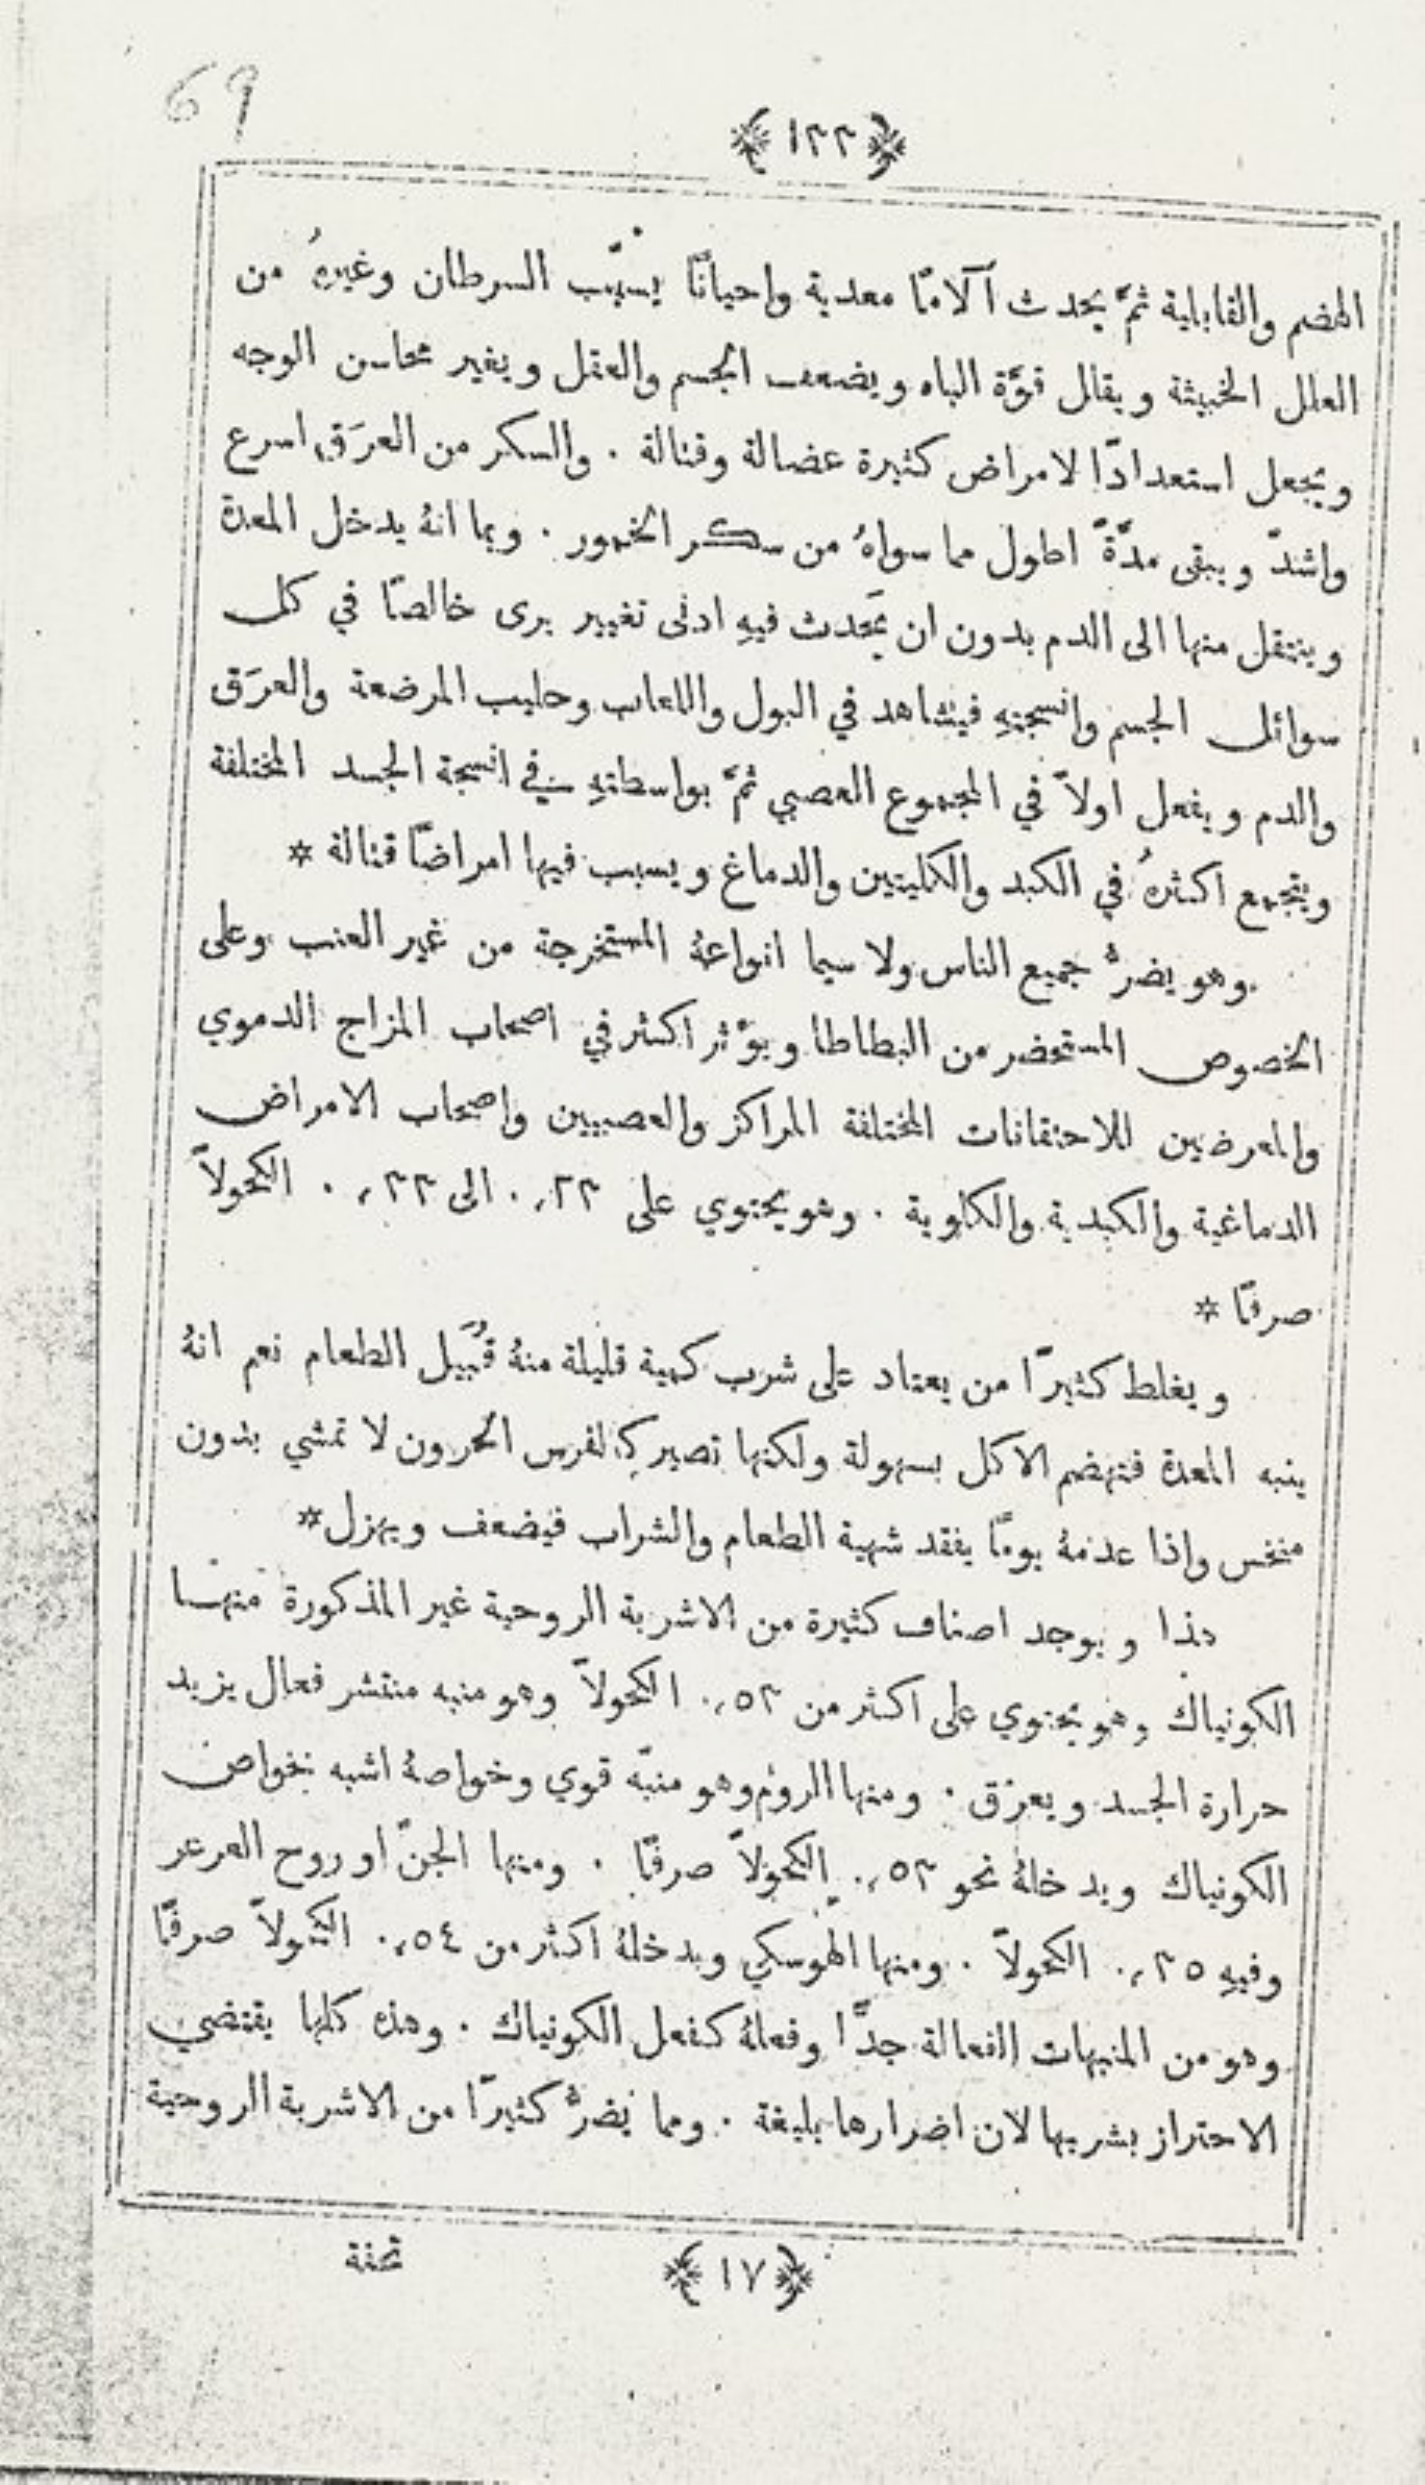 69
﴿ ١٢٢ ﴾
الهضم والقابلية ثمَّ يحدث آلامًا معدية واحيانًا يسبّب السرطان وغيرهُ من
العلل الخبيثة ويقلل قوَّة الباه ويضعف الجسم والعقل ويغير محاسن الوجه
ويجعل استعدادًا لامراض كثيرة عضالة وقتالة . والسكر من العرَق اسرع
واشدّ ويبقى مدَّةً اطول مما سواهُ من سكر الخمور . وبما انهُ يدخل المعدة
وينتقل منها الى الدم بدون ان يَحدث فيهِ ادنى تغيير يرى خالصًا في كل
سوائل الجسم وانسجتهِ فيشاهد في البول واللعاب وحليب المرضعة والعرَق
والدم ويفعل اولاً في المجموع العصبي ثمَّ بواسطتهِ في انسجة الجسد المختلفة
ويتجمع اكثرهُ في الكبد والكليتين والدماغ ويسبب فيها امراضًا قتالة *
وهو يضرُّ جميع الناس ولا سيما انواعهُ المستخرجة من غير العنب وعلى
الخصوص المستحضر من البطاطا ويؤَثر اكثر في اصحاب المزاج الدموي
والمعرضين للاحتقانات المختلفة المراكز والعصبيين واصحاب الامراض
الدماغية والكبدية والكلوية . وهو يحتوي على ٢٣،٠ الى ٣٣،٠ الكحولاً
صرفًا *
ويغلط كثيرًا من يعتاد على شرب كمية قليلة منهُ قُبَيل الطعام نعم انهُ
ينبه المعدة فتهضم الاكل بسهولة ولكنها تصير كالفرس الحرون لا تمشي بدون
منخس واذا عدمهُ يومًا يفقد شهية الطعام والشراب فيضعف ويهزل *
هذا ويوجد اصناف كثيرة من الاشربة الروحية غير المذكورة منها
الكونياك وهو يحتوي على اكثر من ٥٣،٠ الكحولاً وهو منبه منتشر فعال يزيد
حرارة الجسد ويعرّق . ومنها الروم وهو منبّه قوي وخواصهُ اشبه بخواص
الكونياك ويدخلهُ نحو ٥٣،٠ الكحولاً صرفًا . ومنها الجنّ او روح العرعر
وفيهِ ٣٥،٠ الكحولاً . ومنها الهوسكي ويدخلهُ اكثر من ٥٤،٠ الكحولاً صرفًا
وهو من المنبهات الفعالة جدًّا وفعلهُ كفعل الكونياك . وهذه كلها يقتضي
الاحتراز بشربها لان اضرارها بليغة . ومما يَضرُّ كثيرًا من الاشربة الروحية
تحفة
﴿ ١٧ ﴾